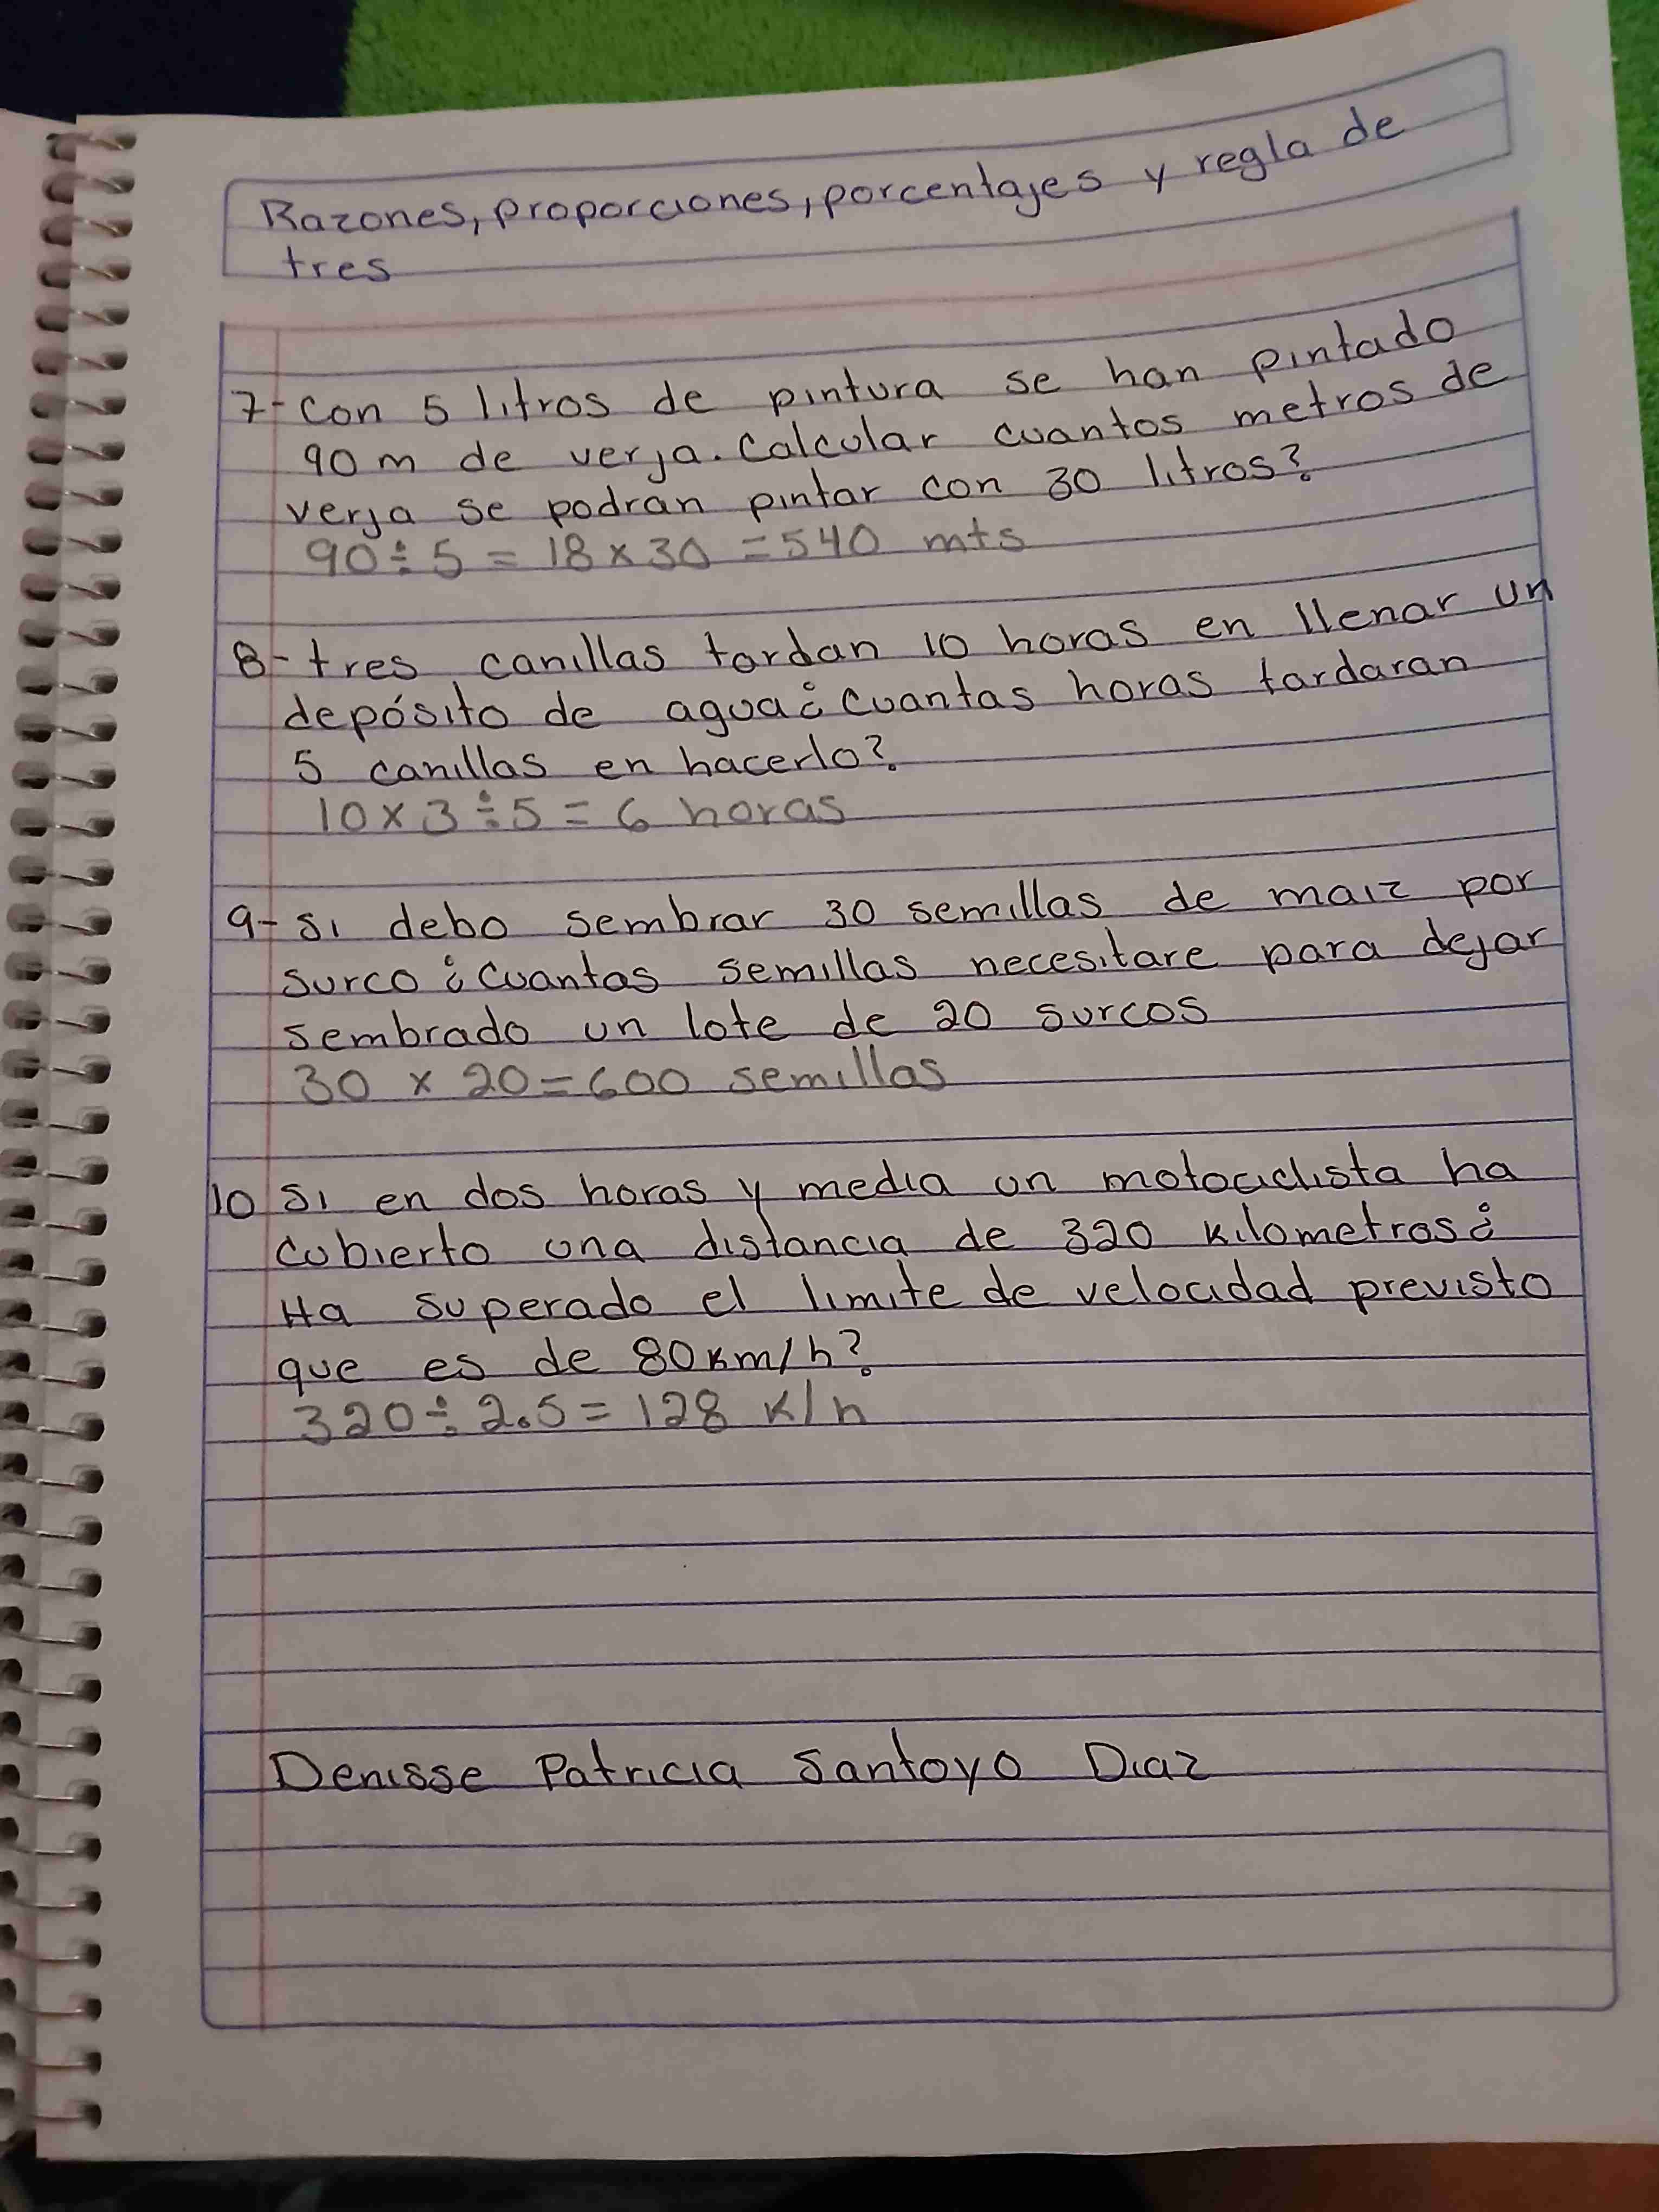 Razones, proporciones, porcentajes y regla de
tres
7- Con 5 litros de pintura se han pintado
90 m de verja. Calcular cuantos metros de
verja se podran pintar con 30 litros?
90 ÷ 5 = 18 x 30 = 540 mts
8- tres canillas tardan 10 horas en llenar un
depósito de agua ¿ cuantas horas tardaran
5 canillas en hacerlo?
10 x 3 ÷ 5 = 6 horas
9- Si debo sembrar 30 semillas de maiz por
surco ¿ Cuantas semillas necesitare para dejar
sembrado un lote de 20 surcos
30 x 20 = 600 semillas
10 Si en dos horas y media un motociclista ha
cubierto una distancia de 320 kilometros ¿
Ha superado el limite de velocidad previsto
que es de 80 km/h?
320 ÷ 2.5 = 128 k/h
Denisse Patricia Santoyo Diaz